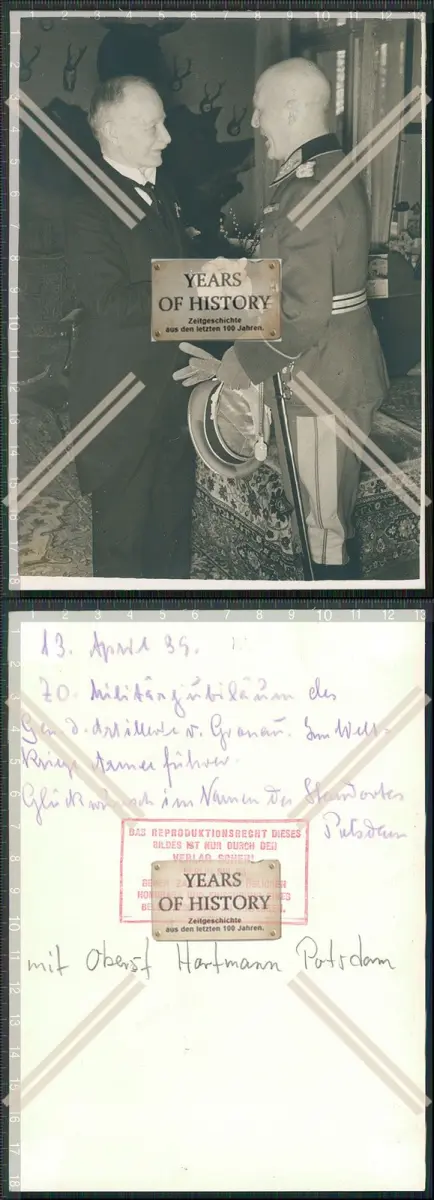 YEARS
OF HISTORY
Zeitgeschichte
aus den letzten 100 Jahren.
13. April 39.
70. Militärjubiläum des
Gen. d. Artillerie v. Gronau. Im Welt-
kriege Armeeführer.
Glückwunsch im Namen des Standortes
Potsdam
DAS REPRODUKTIONSRECHT DIESES
BILDES IST NUR DURCH DEN
VERLAG SCHERL
YEARS
OF HISTORY
Zeitgeschichte
aus den letzten 100 Jahren.
mit Oberst Hartmann Potsdam